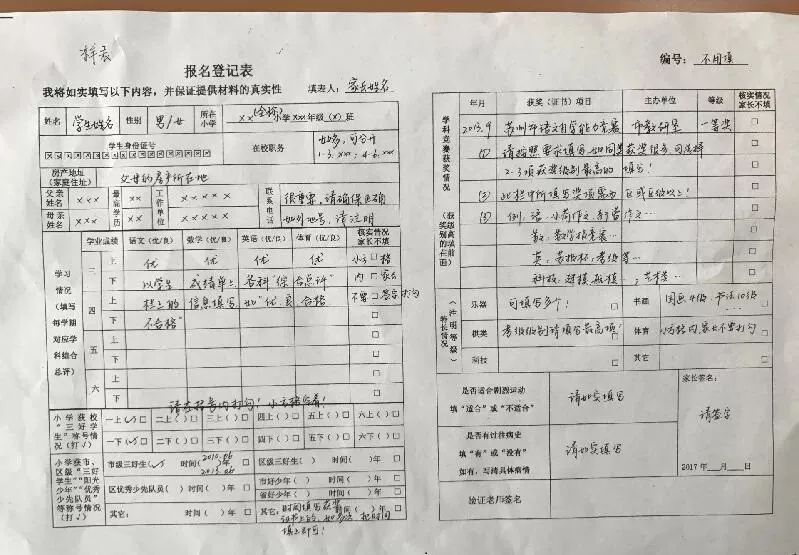 样表
报名登记表
我将如实填写以下内容，并保证提供材料的真实性 填表人：家长姓名
姓名 学生姓名 性别 男/女 所在小学 xx(全称)小学xxx年级(x)班
学生身份证号 在校职务 如多，可合并
1-3. xxx; 4-6. xxx
房产地址（家庭住址） 父母的房产所在地
父亲姓名 xxx 最高学历 xx 工作单位 xxxxx 联系电话 很重要，请确保正确
母亲姓名 xxx xx xxxxx 如外地号，请注明
学业成绩 语文（优/良） 数学（优/良） 英语（优/良） 体育（优/良） 核实情况家长不填
学习情况（填写每学期对应学科结合总评）
三 上 优 优 优 优 小方格
下 以学生 成绩单上 各科“综合总评” 内 家长
四 上 栏上的 信息填写 如“优、良、合格 不要 签字打勾
下 不合格”
五 上
下
六 上
下 请在括号内打勾！
小学获校“三好学生”称号情况（打√）
一上(√) 二上( ) 三上( ) 四上( ) 五上( ) 六上( )
一下(√) 二下( ) 三下( ) 四下( ) 五下( ) 六下( )
小学获市、区级“三好学生”“阳光少年”“优秀少先队员”等称号情况（打√）
市级三好生(√) 时间(2010.06 2013.06)年 区级三好生( ) 时间( )年
区优秀少先队员( ) 时间( )年 市好少年( ) 时间( )年
省好少年( ) 时间( )年
其它： 时间( )年 其它： 时间( )年
时间填写获奖证书上的，如多次，把时间
填上即可！
编号：不用填
学科竞赛获奖情况（获奖级别高的填在前面）
年月 获奖（证书）项目 主办单位 等级 核实情况家长不填
2013.9 苏州市语文自学能力竞赛 市教研室 一等奖
(1) 请按照要求填写，如同类获奖很多，可选择
2-3项获奖级别最高的 填写！
(2) 此栏中所填写奖项需为 区或区级以上！
(3) 例：语：小荷作文、利普作文…
数：数学报竞赛…
英：苏格杯、考级等…
科技：建模、航模…，艺术类…
特长情况（注明等级）
乐器 可填写多个！ 书画 国画4级、书法10级…
棋类 考级级别请填写最高项！ 体育 小方格内，家长不要打勾
科技 其它
是否适合剧烈运动
填“适合”或“不适合” 请如实填写
是否有过往病史
填“有”或“没有”
如有，写清具体病情 请如实填写
家长签名：
请签字
2017 年 月 日
验证老师签名